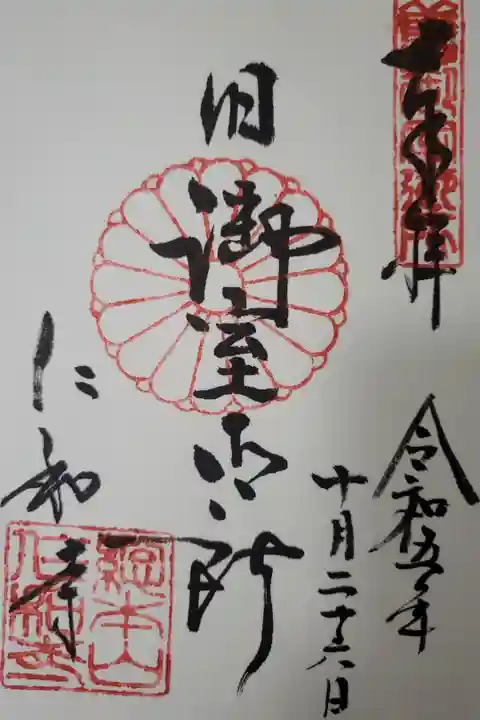 奉拝
令和五年
十月二十六日
旧
御室御所
仁和寺
総本山
仁和寺